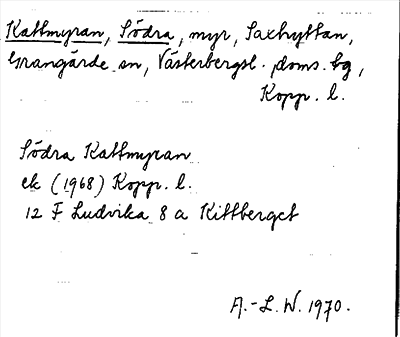 Kattmyran, Södra, myr, Saxhyttan,
Grangärde sn, Västerbergsl. doms. bg,
Kopp. l.
Södra Kattmyran
ek (1968) Kopp. l.
12 F Ludvika 8 a Kittberget
A.-L. W. 1970.